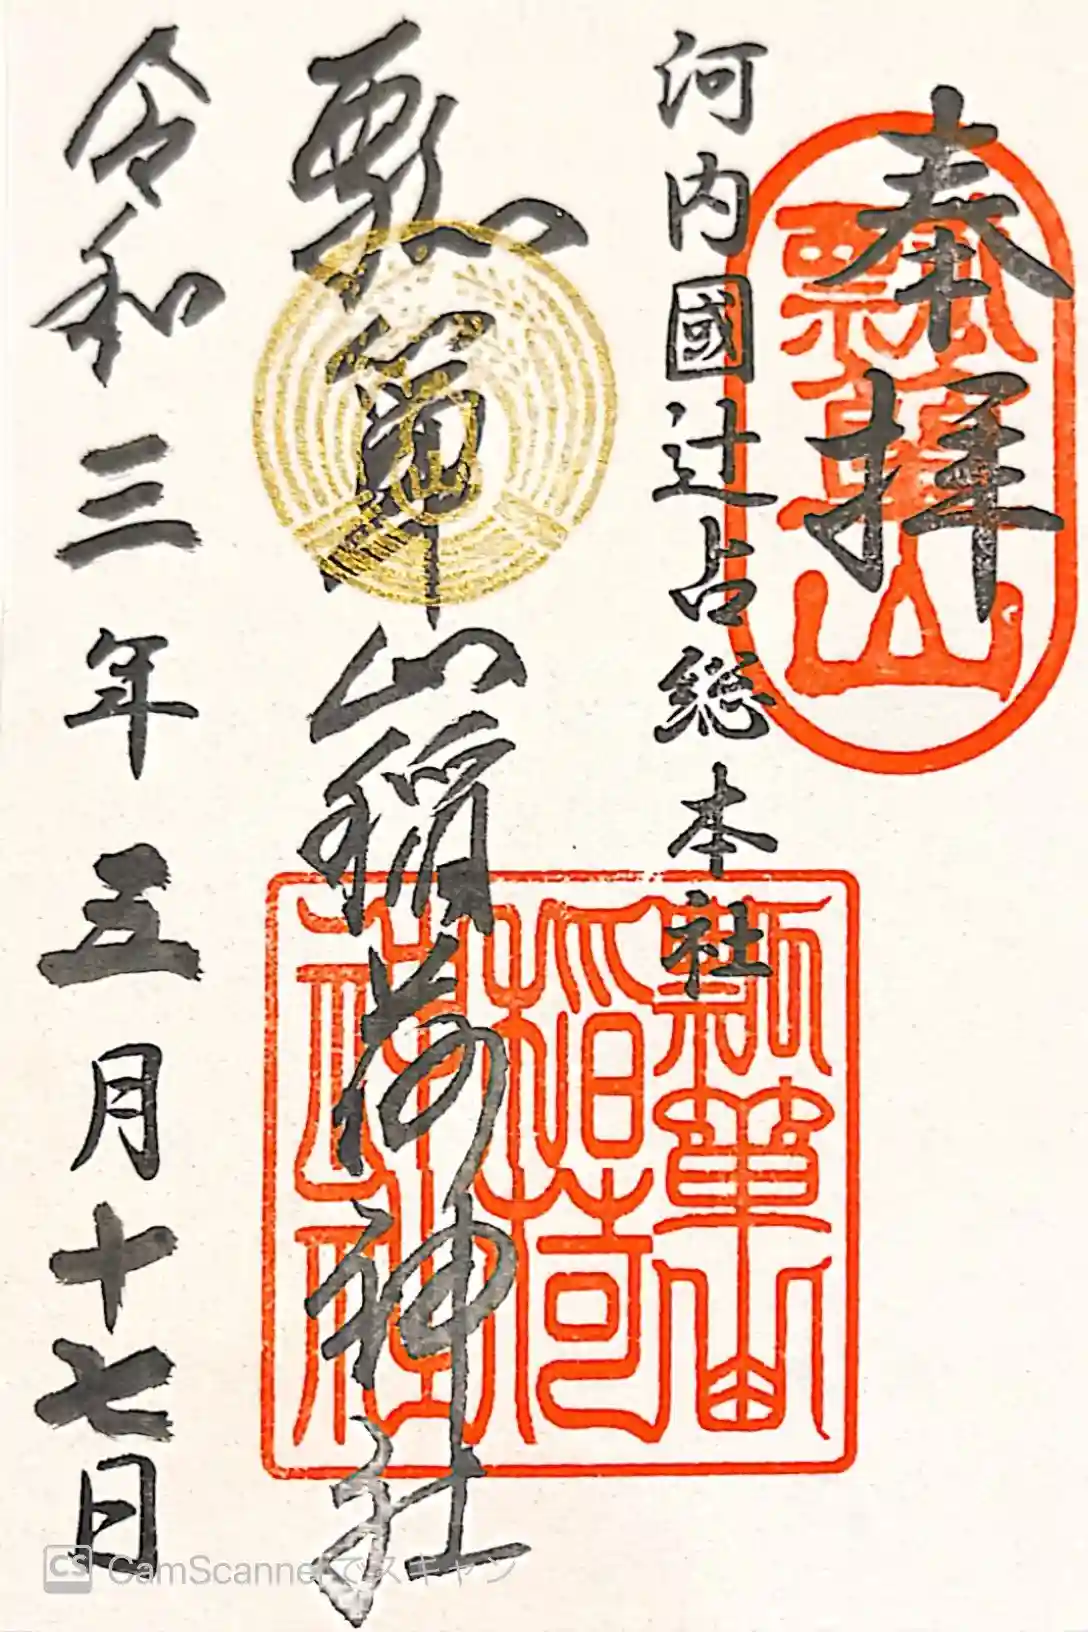 奉拝
瓢箪山
河内國辻占総本社
瓢箪山稲荷神社
瓢箪山
稲荷
神社
令和三年五月十七日
CS CamScannerでスキャン